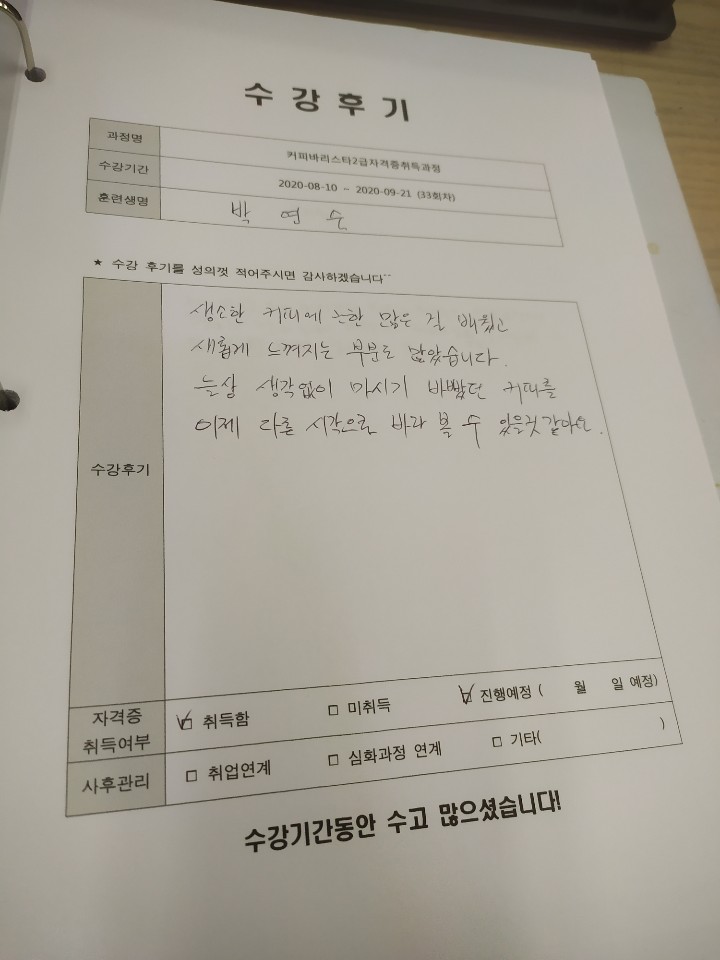 수강후기
과정명 커피바리스타2급자격증취득과정
수강기간 2020-08-10 ~ 2020-09-21 (33회차)
훈련생명 박연수
★ 수강 후기를 성의껏 적어주시면 감사하겠습니다^^
생소한 커피에 많은 걸 배웠고
새롭게 느껴지는 부분도 많았습니다.
늘상 생각없이 마시기 바빴던 커피를
이제 다른 시각으로 바라 볼 수 있을것 같아요.
수강후기
자격증 취득여부 ☑ 취득함 □ 미취득 ☑ 진행예정 ( 월 일 예정)
사후관리 □ 취업연계 □ 심화과정 연계 □ 기타( )
수강기간동안 수고 많으셨습니다!